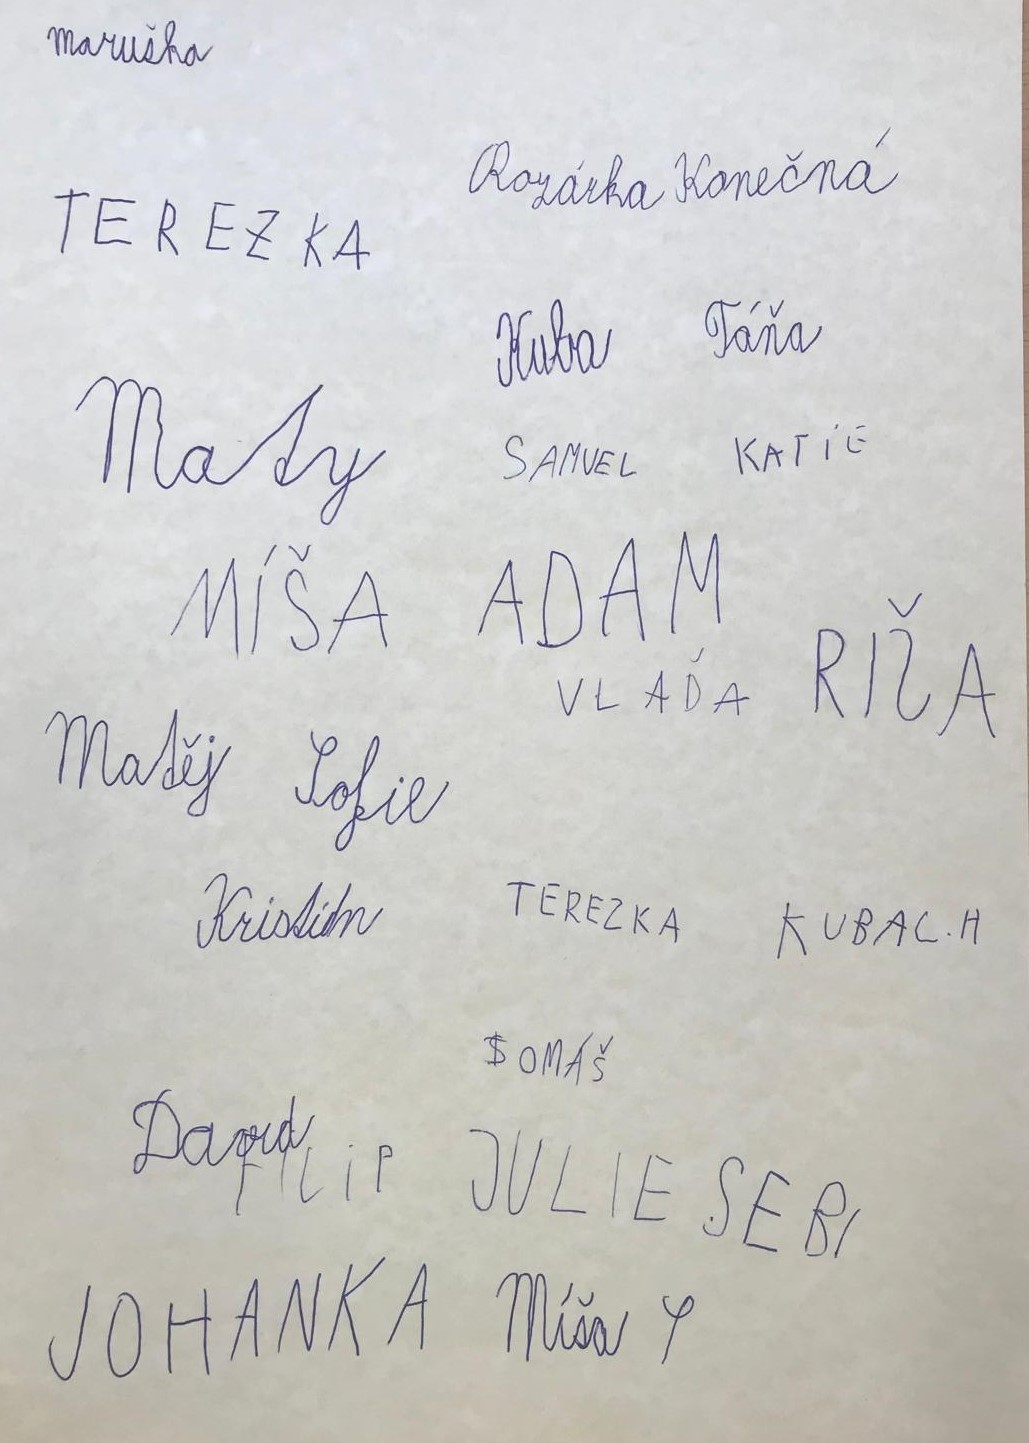 maruška
Rozárka Konečná
TEREZKA
Kuba Táňa
Maty
SAMUEL KATiE
MÍŠA ADAM
VLAĎA RIŽA
Matěj Sofie
Kristián TEREZKA KUBAC.H
TOMÁŠ
David
FILiP JULIE SEBI
JOHANKA Míša Y